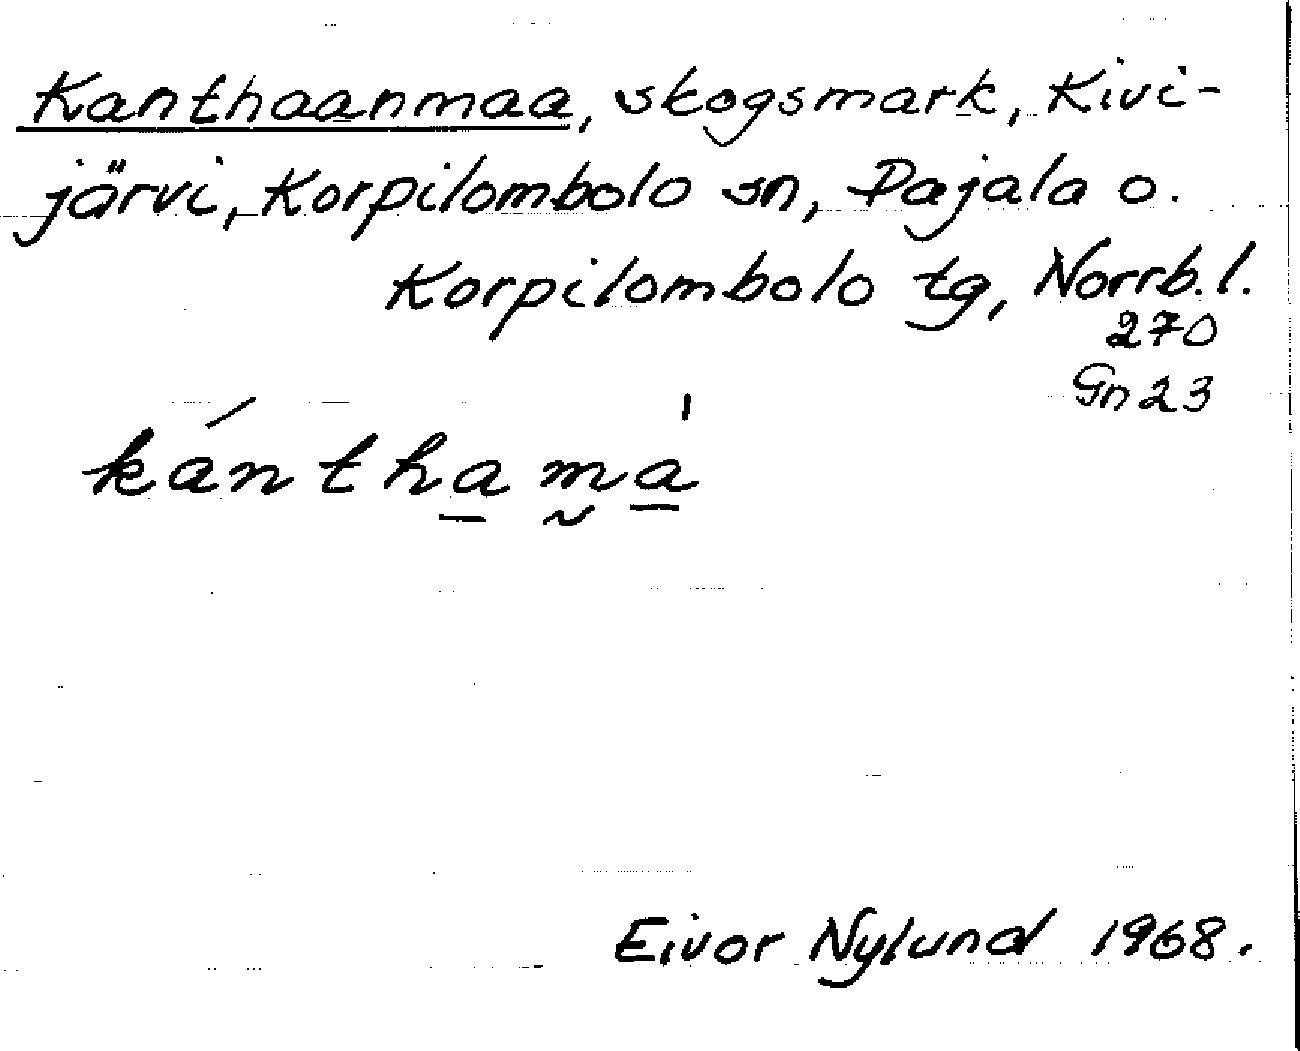 Kanthaanmaa, skogsmark, Kivi-
järvi, Korpilombolo sn, Pajala o.
Korpilombolo tg, Norrb.l.
270
Gn 23
kánthama̍
Eivor Nylund 1968.